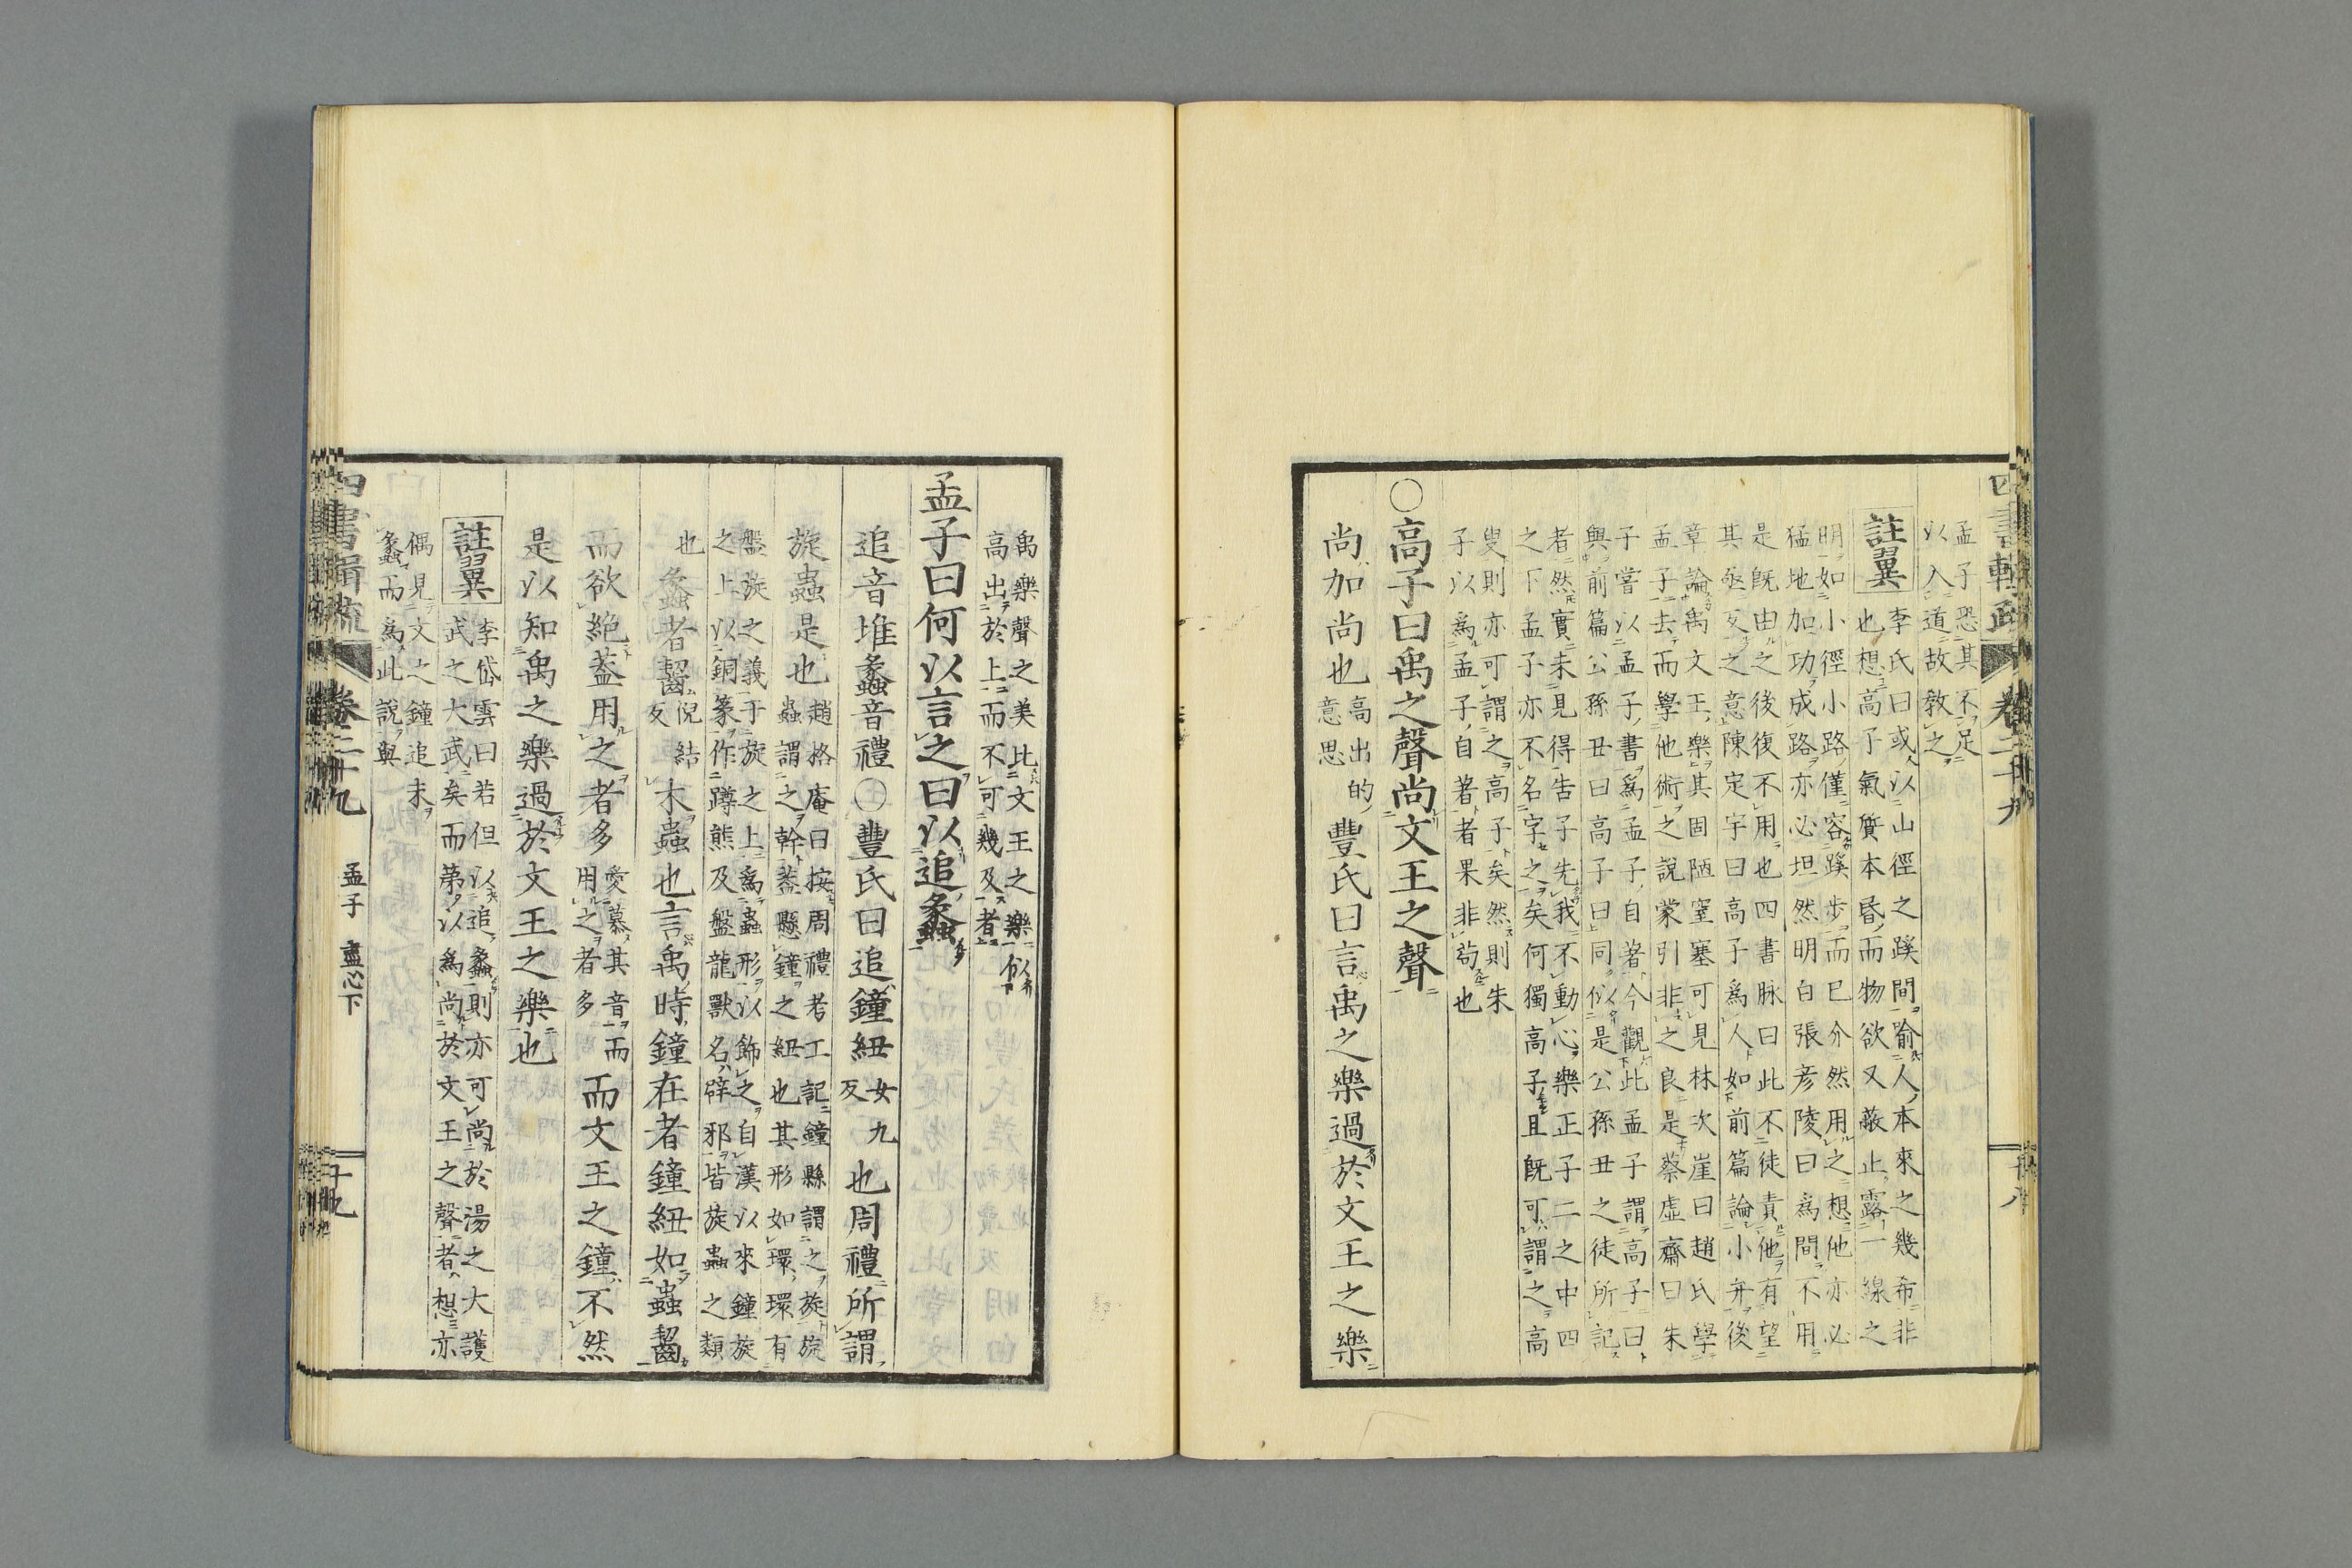 孟子恐其不足
以入道故教之
註翼
李氏曰或以山徑之蹊間喻人本來之幾希非
也想高子氣質本昏而物欲又蔽止露一線之
明如小徑小路僅容蹊步而已介然用之想他亦必
猛地加功成路亦必坦然明白張彦陵曰為間不用
是既由之後復不用也四書脉曰此不徒責他有望
其亟反之意陳定宇曰高子為人如前篇論小弁後
章論禹文王樂其固陋窒塞可見林次崖曰趙氏學
孟子去而學他術之說蒙引非之良是蔡虛齋曰朱
子嘗以孟子書為孟子自著今觀此孟子謂高子曰
與前篇公孫丑曰高子曰同似是公孫丑之徒所記
者然實未見得告子先我不動心樂正子二之中四
之下孟子亦不名字之矣何獨高子且既可謂之高
叟則亦可謂之高子矣然則朱
子以為孟子自著者果非苟也
○高子曰禹之聲尚文王之聲
尚加尚也
高出的
意思
豐氏曰言禹之樂過於文王之樂
四書輯疏 卷二十九 十八
禹樂聲之美比文王之樂似
高出於上而不可幾及者
孟子曰何以言之曰以追蠡
追音堆蠡音禮○豐氏曰追鐘紐
女九
反
也周禮所謂
旋蟲是也
趙格庵曰按周禮考工記鐘縣謂之旋旋
蟲謂之幹蓋懸鐘之紐也其形如環環有
盤旋之義于旋之上為蟲形以飾之自漢以來鐘旋
之上以銅篆作蹲熊及盤龍獸名辟邪皆旋蟲之類
也
蠡者齧
倪結
反
木蟲也言禹時鐘在者鐘紐如蟲齧
而欲絕蓋用之者多
愛慕其音而
用之者多
而文王之鐘不然
是以知禹之樂過於文王之樂也
註翼
李岱雲曰若但以追蠡則亦可尚於湯之大護
武之大武矣而第以為尚於文王之聲者想亦
偶見文之鐘追未
蠡而為此說與
四書輯疏 卷二十九 孟子 盡心下 十九